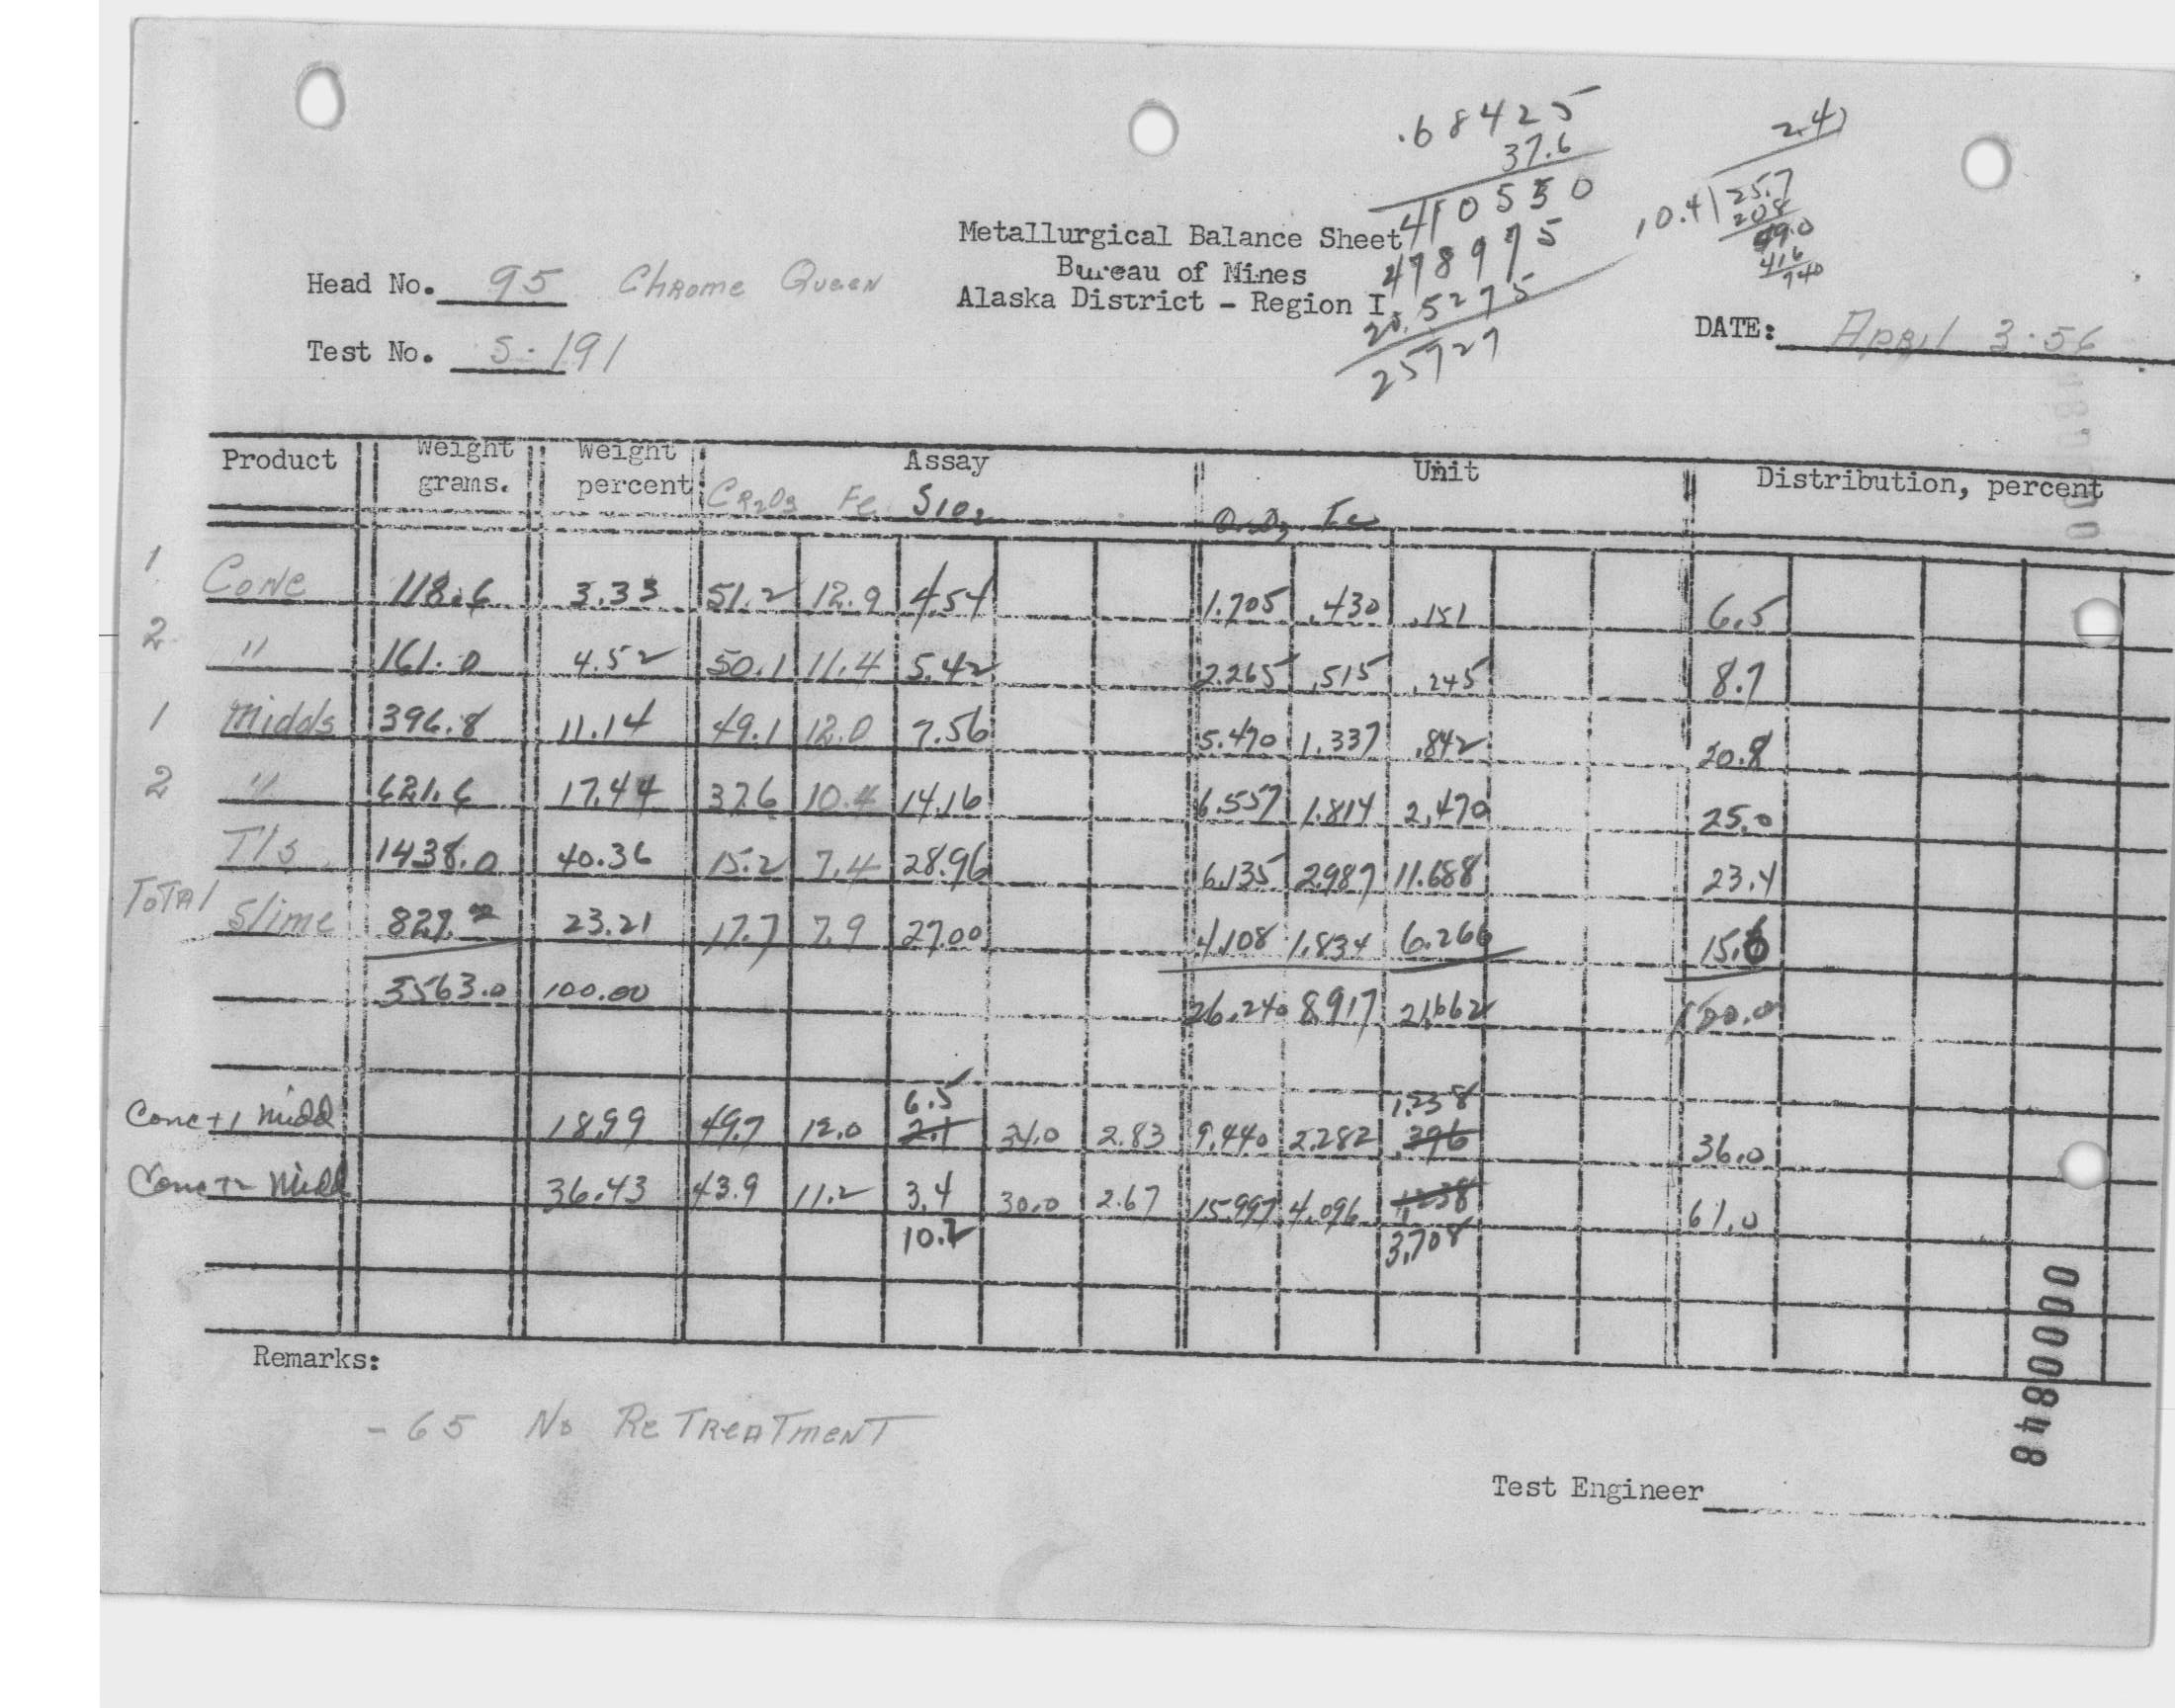 .68425
37.6
410550
478975
20.5275
25727
2.47
10.4 25.7
208
49.0
416
740
Metallurgical Balance Sheet
Bureau of Mines
Alaska District - Region I
Head No. 95 Chrome Queen
Test No. S-191
DATE: April 3-56
Product Weight grams. Weight percent Assay Unit Distribution, percent
Cr2O3 Fe SiO2 Cr2O3 Fe
1 Conc 118.6 3.33 51.2 12.9 4.54 1.705 .430 .151 6.5
2 " 161.0 4.52 50.1 11.4 5.42 2.265 .515 .245 8.7
1 Midds 396.8 11.14 49.1 12.0 7.56 5.470 1.337 .842 20.8
2 " 621.6 17.44 37.6 10.4 14.16 6.557 1.814 2.470 25.0
Tls 1438.0 40.36 15.2 7.4 28.96 6.135 2.987 11.688 23.4
Total Slime 827.0 23.21 17.7 7.9 27.00 4.108 1.834 6.266 15.6
3563.0 100.00 26.240 8.917 21.662 100.0
6.5 1.238
Conc+1 Midd 18.99 49.7 12.0 2.1 34.0 2.83 9.440 2.282 .396 36.0
Conc+2 Midd 36.43 43.9 11.2 3.4 30.0 2.67 15.997 4.096 1.238 61.0
10.2 3.708
Remarks:
-65 No ReTreatment
Test Engineer
0000848